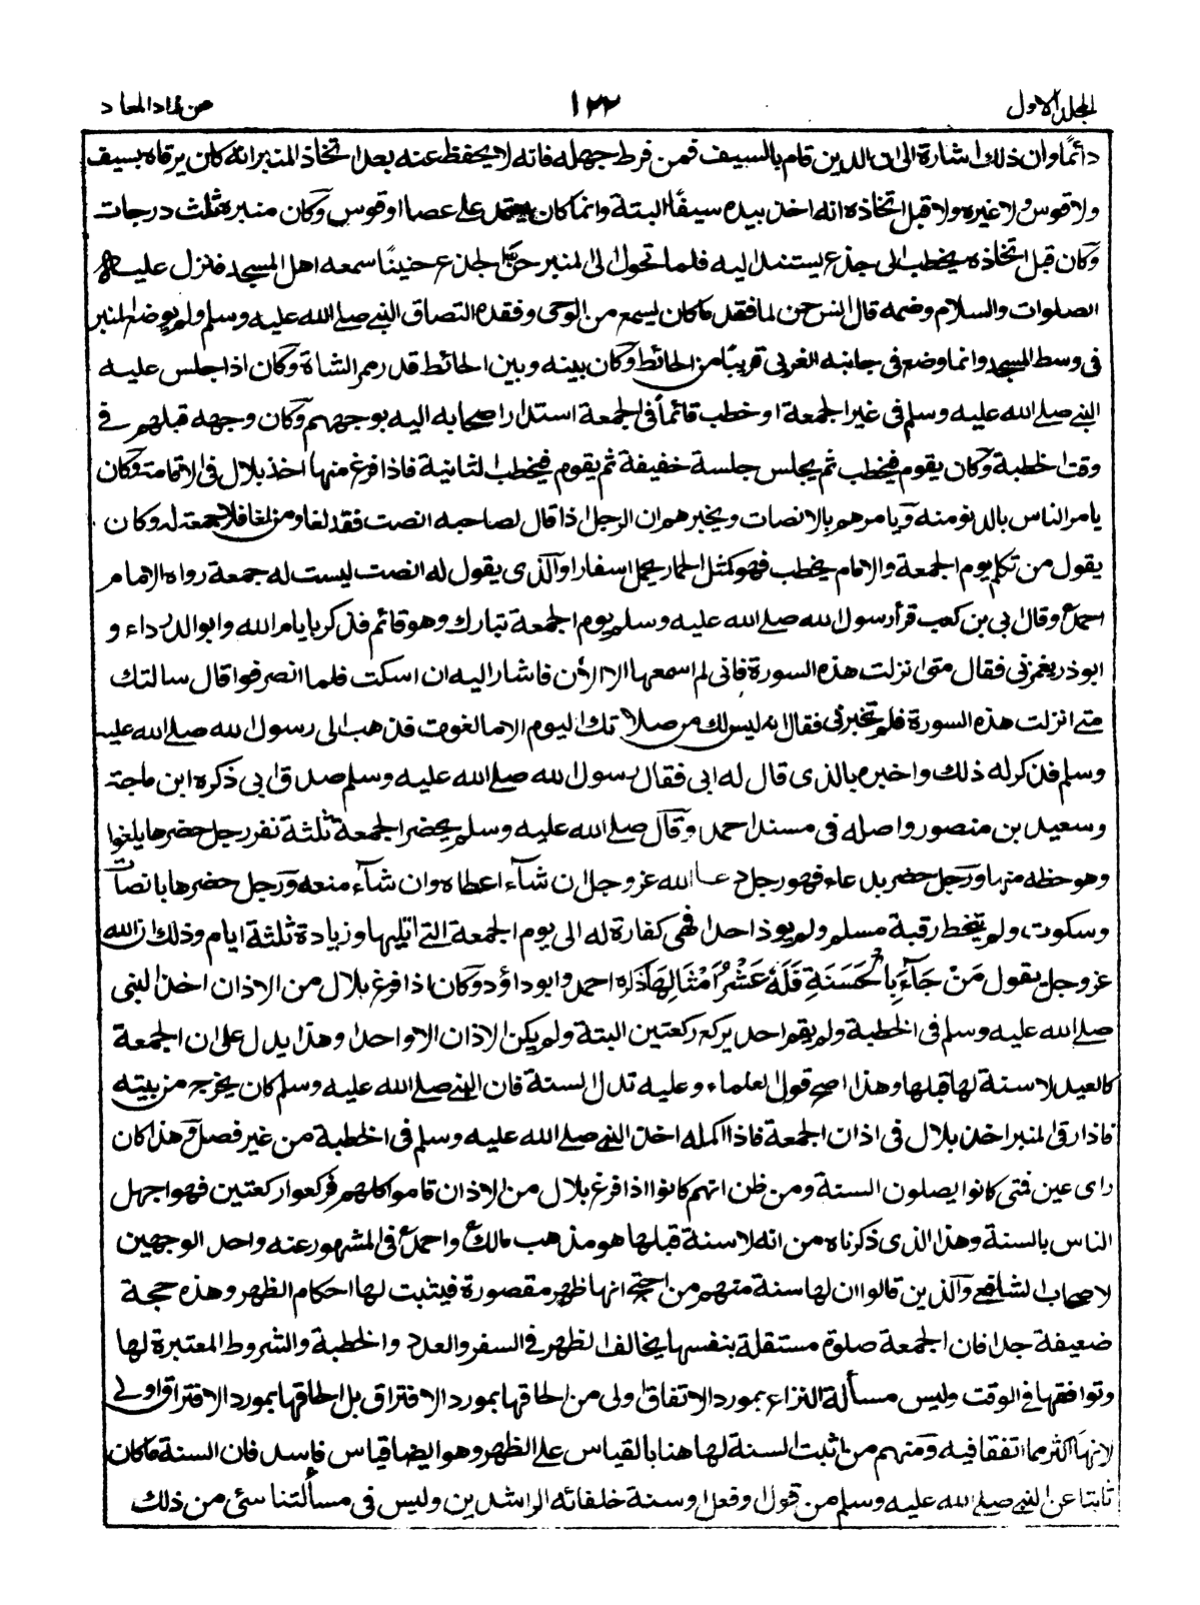 الجلد الاول ١٢٢ من زاد المعاد
دائمًا وان ذلك اشارة الى ان الدين قام بالسيف فمن فرط جهله فانه لا يحفظ عنه بعد اتخاذ المنبر انه كان يرقاه بسيف
ولا قوس ولا غيره ولا قبل اتخاذه انه اخذ بيده سيفًا البتة وانما كان يعتمد على عصا او قوس وكان منبره ثلث درجات
وكان قبل اتخاذه يخطب الى جذع يستند اليه فلما تحول الى المنبر حن الجذع حنينًا سمعه اهل المسجد فنزل عليه
الصلوات والسلام وضمه قال انس حن لما فقد ما كان يسمع من الوحى وفقده التصاق النبي صلى الله عليه وسلم ولم يوضع المنبر
فى وسط المسجد وانما وضع فى جانبه الغربى قريبًا من الحائط وكان بينه وبين الحائط قدر ممر الشاة وكان اذا جلس عليه
النبي صلى الله عليه وسلم فى غير الجمعة او خطب قائمًا فى الجمعة استدار اصحابه اليه بوجههم وكان وجهه قبلهم فى
وقت الخطبة وكان يقوم فيخطب ثم يجلس جلسة خفيفة ثم يقوم فيخطب الثانية فاذا فرغ منها اخذ بلال فى الاقامة وكان
يامر الناس بالدنو منه ويامرهم بالانصات ويخبرهم ان الرجل اذا قال لصاحبه انصت فقد لغا ومن لغا فلا جمعة له وكان
يقول من تكلم يوم الجمعة والامام يخطب فهو كمثل الحمار يحمل اسفارا والذى يقول له انصت ليست له جمعة رواه الامام
احمد وقال ابى بن كعب قرأ رسول الله صلى الله عليه وسلم يوم الجمعة تبارك وهو قائم فذكر بايام الله وابو الدرداء و
ابو ذر يغمزنى فقال متى انزلت هذه السورة فانى لم اسمعها الا الأن فاشار اليه ان اسكت فلما انصرفوا قال سالتك
متى انزلت هذه السورة فلم تخبرنى فقال انه ليس لك من صلاتك اليوم الا ما لغوت فذهب الى رسول الله صلى الله عليه
وسلم فذكر له ذلك واخبره بالذى قال له ابى فقال رسول الله صلى الله عليه وسلم صدق ابى ذكره ابن ماجة
وسعيد بن منصور واصله فى مسند احمد وقال صلى الله عليه وسلم يحضر الجمعة ثلثة نفر رجل حضرها يلغوا
وهو حظه منها ورجل حضر بدعاء فهو رجل دعا الله عز وجل ان شآء اعطاه وان شآء منعه ورجل حضرها بانصات
وسكوت ولم يتخط رقبة مسلم ولم يوذ احدا فهى كفارة له الى يوم الجمعة التى تليها وزيادة ثلثة ايام وذلك ان الله
عز وجل يقول مَنْ جَآءَ بِالْحَسَنَةِ فَلَهٗ عَشْرُ اَمْثَالِهَا ذكره احمد وابو داؤد وكان اذا فرغ بلال من الاذان اخذ النبى
صلى الله عليه وسلم فى الخطبة ولم يقم احد يركع ركعتين البتة ولم يكن الاذان الا واحدا وهذا يدل على ان الجمعة
كالعيد لا سنة لها قبلها وهذا اصح قول العلماء وعليه تدل السنة فان النبي صلى الله عليه وسلم كان يخرج من بيته
فاذا رقى المنبر اخذ بلال فى اذان الجمعة فاذا اكمله اخذ النبي صلى الله عليه وسلم فى الخطبة من غير فصل وهذا كان
راى عين فمتى كانوا يصلون السنة ومن ظن انهم كانوا اذا فرغ بلال من الاذان قاموا كلهم فركعوا ركعتين فهو اجهل
الناس بالسنة وهذا الذى ذكرناه من انه لا سنة قبلها هو مذهب مالك واحمد فى المشهور عنه واحد الوجهين
لاصحاب الشافعى والذين قالوا ان لها سنة منهم من احتج انها ظهر مقصورة فيثبت لها احكام الظهر وهذه حجة
ضعيفة جدا فان الجمعة صلوة مستقلة بنفسها يخالف الظهر فى السفر والعدد والخطبة والشروط المعتبرة لها
وتوافقها فى الوقت وليس مسألة النزاع بمورد الاتفاق اولى من الحاقها بمورد الافتراق بل الحاقها بمورد الافتراق اولى
لانها اكثر مما اتفقا فيه ومنهم من اثبت السنة لها هنا بالقياس على الظهر وهو ايضا قياس فاسد فان السنة ما كان
ثابتا عن النبي صلى الله عليه وسلم من قول او فعل او سنة خلفائه الراشدين وليس فى مسألتنا شئ من ذلك